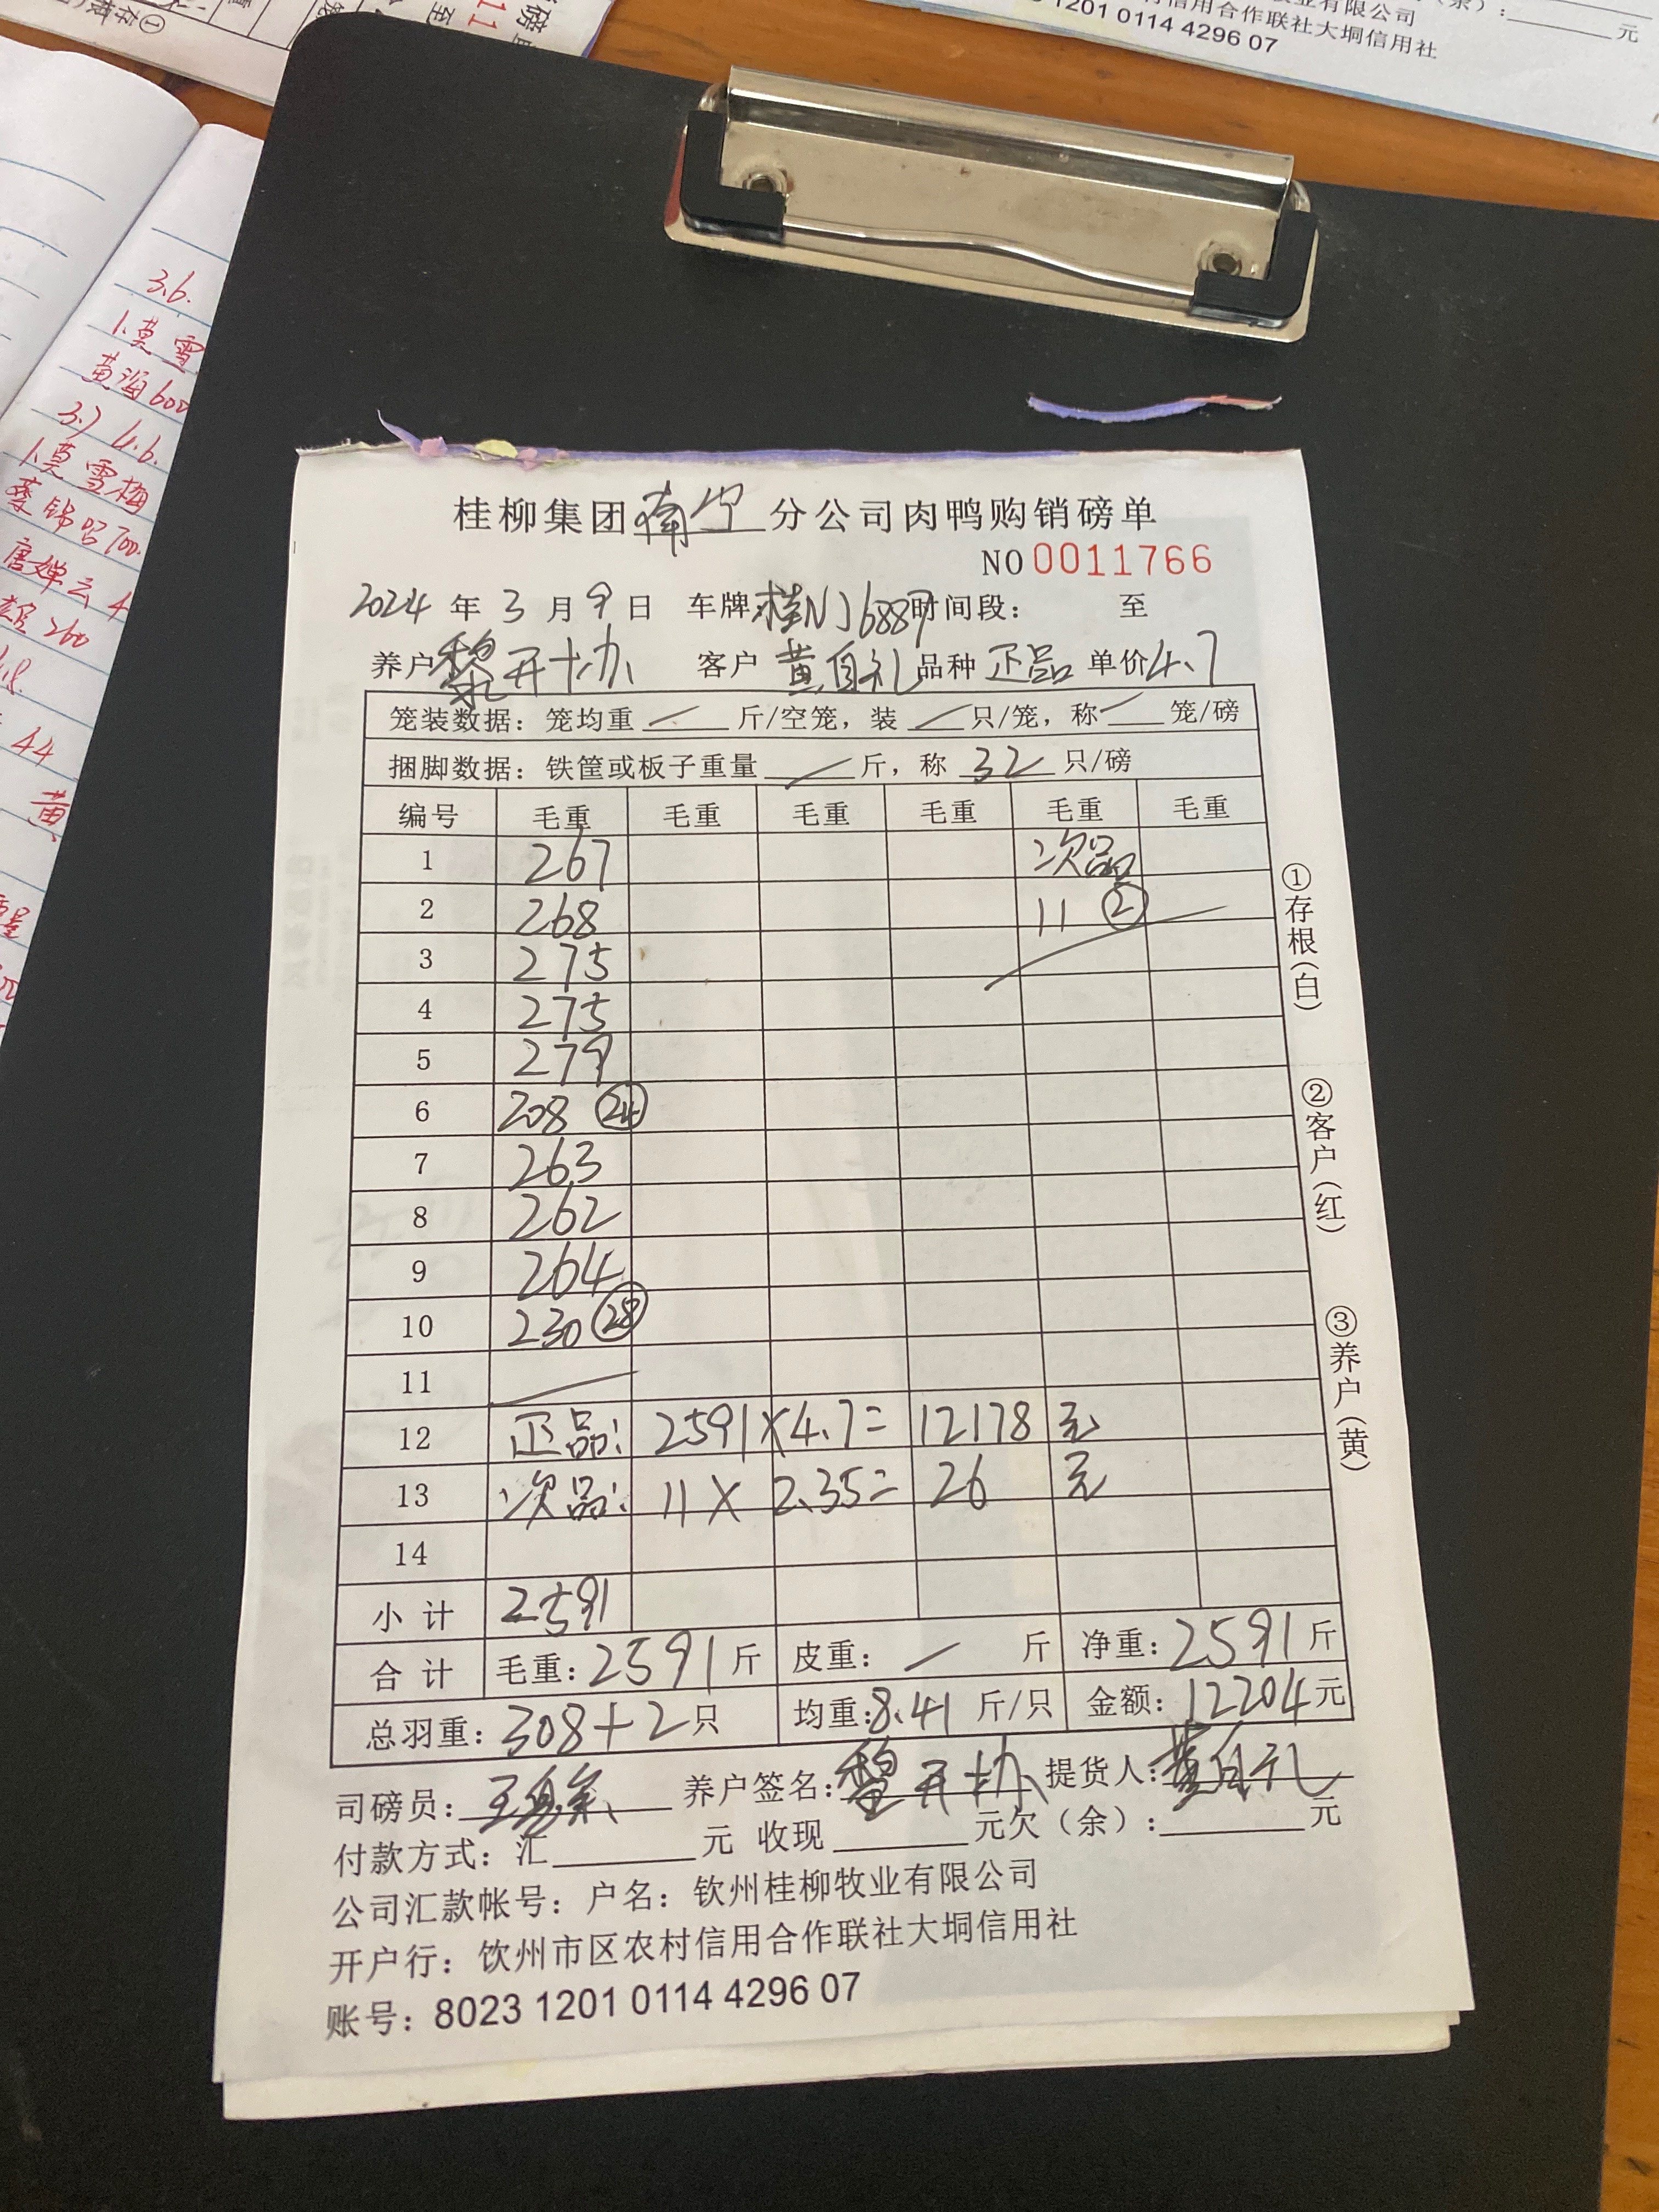 桂柳集团南宁分公司肉鸭购销磅单
NO 0011766
2024 年 3 月 9 日 车牌:桂NJ6887时间段: 至
养户黎开协 客户 黄自礼 品种 正品 单价4.7
笼装数据: 笼均重 / 斤/空笼, 装 / 只/笼, 称 / 笼/磅
捆脚数据: 铁筐或板子重量 / 斤, 称 32 只/磅
编号 毛重 毛重 毛重 毛重 毛重 毛重
1 267 次品
2 268 11 ②
3 275
4 275
5 279
6 208 ㉔
7 263
8 262
9 264
10 230 ㉘
11
12 正品: 2591×4.7= 12178 元
13 次品: 11× 2.35= 26 元
14
小计 2591
合计 毛重: 2591 斤 皮重: / 斤 净重: 2591 斤
总羽重: 308+2只 均重:8.41 斤/只 金额: 12204元
司磅员: 养户签名:黎开协 提货人:黄自礼
付款方式: 汇 元 收现 元欠(余): 元
公司汇款帐号: 户名: 钦州桂柳牧业有限公司
开户行: 饮州市区农村信用合作联社大垌信用社
账号: 8023 1201 0114 4296 07
①存根(白)
②客户(红)
③养户(黄)
3.6.
1.莫雪
黄海600
1.莫雪梅
44
黄
①存根
11
至
业有限公司
信用合作联社大垌信用社
1201 0114 4296 07
元